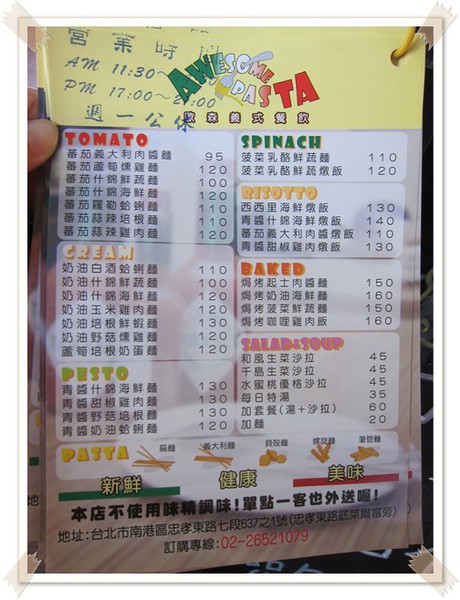 營業時間
AM 11:30~
PM 17:00~21:00
週一公休
AWESOME PASTA
歐森義式餐飲
TOMATO
蕃茄義大利肉醬麵 95
蕃茄蘆筍燻雞麵 120
蕃茄什錦鮮蔬麵 100
蕃茄什錦海鮮麵 120
蕃茄羅勒蛤蜊麵 110
蕃茄蒜辣培根麵 110
蕃茄蒜辣雞肉麵 120
CREAM
奶油白酒蛤蜊麵 110
奶油什錦鮮蔬麵 100
奶油什錦海鮮麵 120
奶油玉米雞肉麵 120
奶油培根鮮蝦麵 130
奶油野菇燻雞麵 120
蘆筍培根奶蛋麵 120
PESTO
青醬什錦海鮮麵 130
青醬甜椒雞肉麵 130
青醬野菇培根麵 130
青醬奶油蛤蜊麵 120
SPINACH
菠菜乳酪鮮蔬麵 110
菠菜乳酪鮮蔬燉飯 120
RISOTTO
西西里海鮮燉飯 130
青醬什錦海鮮燉飯 140
蕃茄義大利肉醬燉飯 110
青醬甜椒雞肉燉飯 130
BAKED
焗烤起士肉醬麵 150
焗烤奶油海鮮麵 160
焗烤蔬菜鮮菇麵 150
焗烤咖哩雞肉飯 160
SALAD&SOUP
和風生菜沙拉 45
千島生菜沙拉 45
水蜜桃優格沙拉 45
每日特湯 35
加套餐(湯+沙拉) 60
加麵 20
PASTA
扁麵 義大利麵 貝殼麵 螺旋麵 筆管麵
新鮮 健康 美味
本店不使用味精調味!單點一客也外送喔!
地址:台北市南港區忠孝東路七段637之1號(忠孝東路底萊爾富旁)
訂購專線:02-26521079